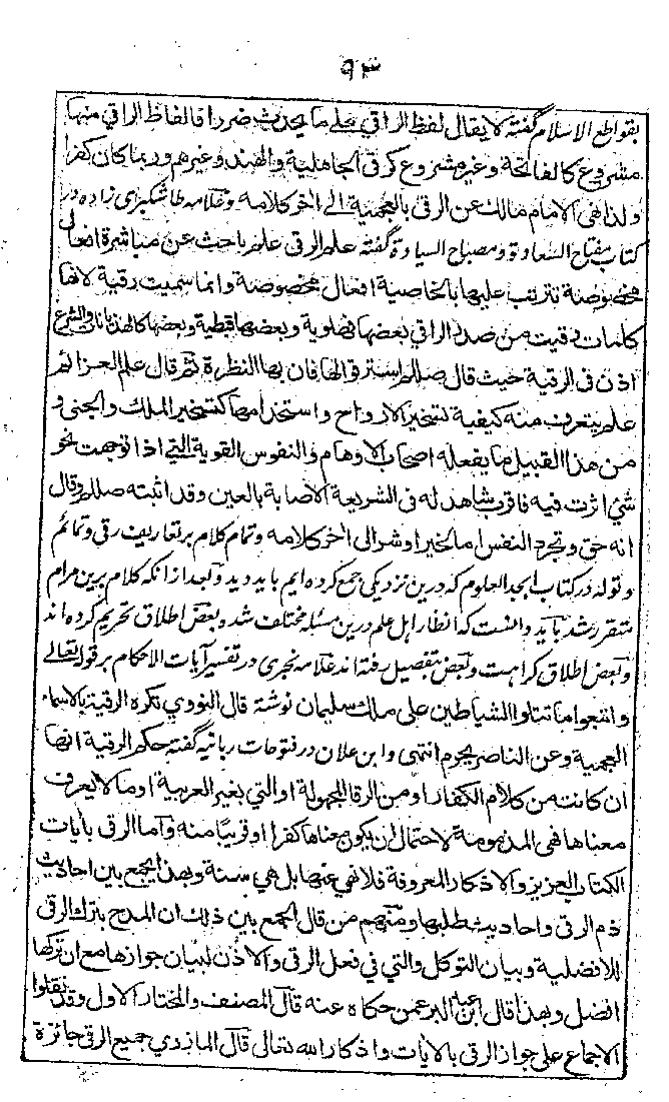 ۹۳
بقواطع الاسلام گفته لا يقال لفظ الراقي على ما يحدث ضررا فالفاظ الراقي منها
مشروع كالفاتحة وغير مشروع كرقى الجاهلية والهند وغيرهم وربما كان كفرا
ولذا نهى الامام مالك عن الرقى بالعجمية الى اخر كلامه وعلامه طاشكبرى زاده در
كتاب مفتاح السعادة ومصباح السيادة گفته علم الرقى علم باحث عن مباشرة افعال
مخصوصة تترتب عليها بالخاصية افعال مخصوصة وانما سميت رقية لانها
كلمات رقيت من صدر الراقي بعضها فهلوية وبعضها قبطية وبعضها كالهذيانات والشرع
اذن فى الرقية حيث قال صللم استرقوا لها فان بها النظرة ثم قال علم العزائم
علم يتعرف منه كيفية تسخير الارواح واستخدامها كتسخير الملك والجنى و
من هذا القبيل ما يفعله اصحاب الاوهام والنفوس القوية التي اذا توجهت نحو
شئ اثرت فيه فاقرب شاهد له فى الشريعة الاصابة بالعين وقد اثبته صللم وقال
انه حق وتجرد النفس اما لخير او شر الى اخر كلامه وتمام كلام بر تعاريف رقى وتمائم
وتوله در كتاب ابجد العلوم كه درين نزديكى جمع كرده ايم بايد ديد وبعد ازانكه كلام برين مرام
متقرر شد بايد دانست كه انظار اهل علم درين مسئله مختلف شده بعض اطلاق تحريم كرده اند
وبعض اطلاق كراهت وبعض بتفصيل رفته اند علامه نجرى در تفسير آيات الاحكام بر قوله تعالى
واتبعوا ما تتلوا الشياطين على ملك سليمان نوشته قال النووي تكره الرقية بالاسماء
العجمية وعن الناصر يحرم انتهى وابن علان در فتوحات ربانيه گفته حكم الرقية انها
ان كانت من كلام الكفار او من الرقا المجهولة او التي بغير العربية او ما لا يعرف
معناها فهى المذمومة لاحتمال ان يكون معناها كفرا او قريبا منه وآما الرقى بايات
الكتاب العزيز والاذكار المعروفة فلا نهي عنها بل هي سنة وبهذا يجمع بين احاديث
ذم الرقى واحاديث طلبها ومنهم من قال الجمع بين ذلك ان المدح بترك الرقى
للافضلية وبيان التوكل والتي في فعل الرقى والاذن لبيان جوازها مع ان تركها
افضل وبهذا قال ابن عبد البر عمن حكاه عنه قال المصنف والمختار الاول وقد نقلوا
الاجماع على جواز الرقى بالايات واذكار الله تعالى قال المازري جميع الرقى جائزة